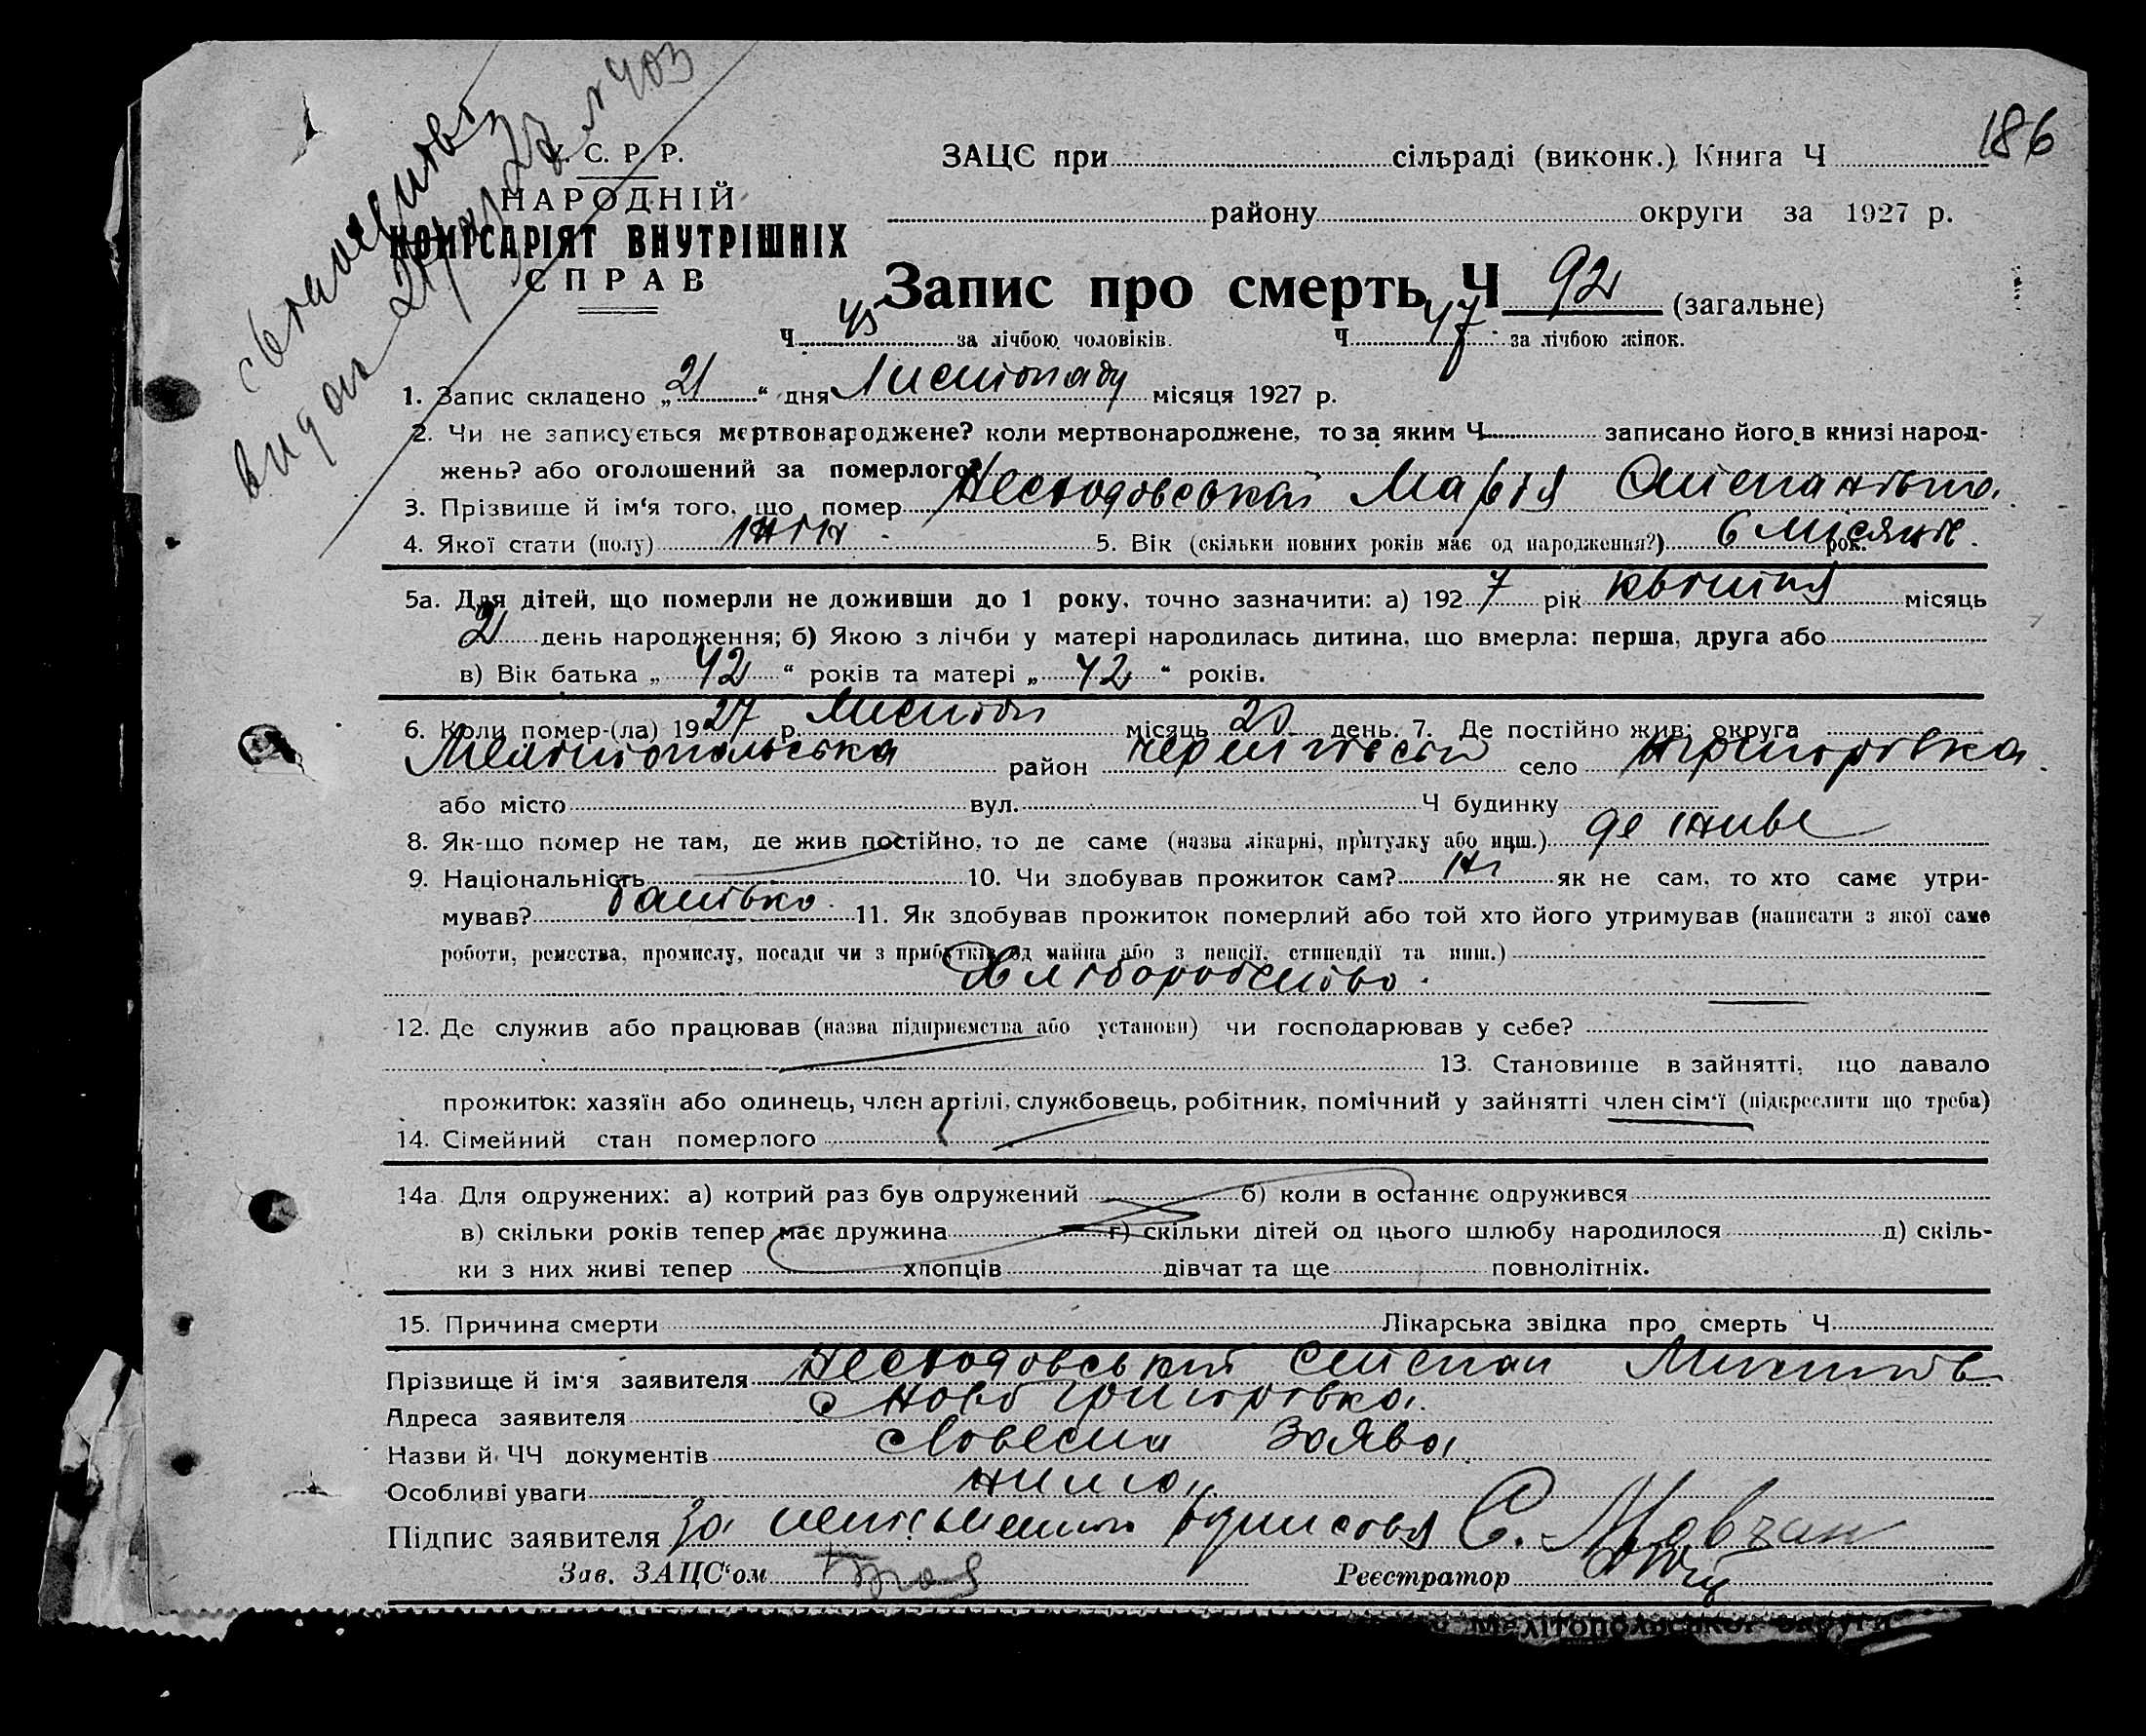 186
У. С. Р. Р.
НАРОДНІЙ
КОМІСАРІЯТ ВНУТРІШНІХ
СПРАВ
видан 21/XI 27 № 403
ЗАЦС при сільраді (виконк.) Книга Ч
району округи за 1927 р.
Запис про смерть Ч 92 (загальне)
Ч 45 за лічбою чоловіків. Ч 47 за лічбою жінок.
1. Запис складено „21“ дня Листопаду місяця 1927 р.
2. Чи не записується мертвонароджене? коли мертвонароджене, то за яким Ч записано його в книзі народ-
жень? або оголошений за померлого?
3. Прізвище й ім‘я того, що помер Марія
4. Якої статі (полу) жін 5. Вік (скільки повних років має од народження?) 6 місяців рок.
5а. Для дітей, що померли не доживши до 1 року, точно зазначити: а) 1927 рік квітня місяць
2 день народження; б) Якою з лічби у матері народилась дитина, що вмерла: перша, друга або
в) Вік батька „42“ років та матері „42“ років.
6. Коли помер-(ла) 1927 р. місяць 20 день. 7. Де постійно жив: округа
Мелітопольська район село
або місто вул. Ч будинку
8. Як-що помер не там, де жив постійно, то де саме (назва лікарні, притулку або инш.) де живе
9. Національність 10. Чи здобував прожиток сам? ні як не сам, то хто саме утри-
мував? батько 11. Як здобував прожиток померлий або той хто його утримував (написати з якої саме
роботи, ремества, промислу, посади чи з прибутків од майна або з пенсії, стипендії та инш.)
Хліборобство.
12. Де служив або працював (назва підприємства або установи) чи господарював у себе?
13. Становище в зайнятті, що давало
прожиток: хазяїн або одинець, член артілі, службовець, робітник, помічний у зайнятті член сім‘ї (підкреслити що треба)
14. Сімейний стан померлого
14а. Для одружених: а) котрий раз був одружений б) коли в останнє одружився
в) скільки років тепер має дружина г) скільки дітей од цього шлюбу народилося д) скіль-
ки з них живі тепер хлопців дівчат та ще повнолітніх.
15. Причина смерти Лікарська звідка про смерть Ч
Прізвище й ім‘я заявителя Степан
Адреса заявителя с Ново Григорівка.
Назви й ЧЧ документів Словесна заява
Особливі уваги нима
Підпис заявителя За С. Мовчан
Зав. ЗАЦС‘ом Реєстратор
Мелітопольської округи